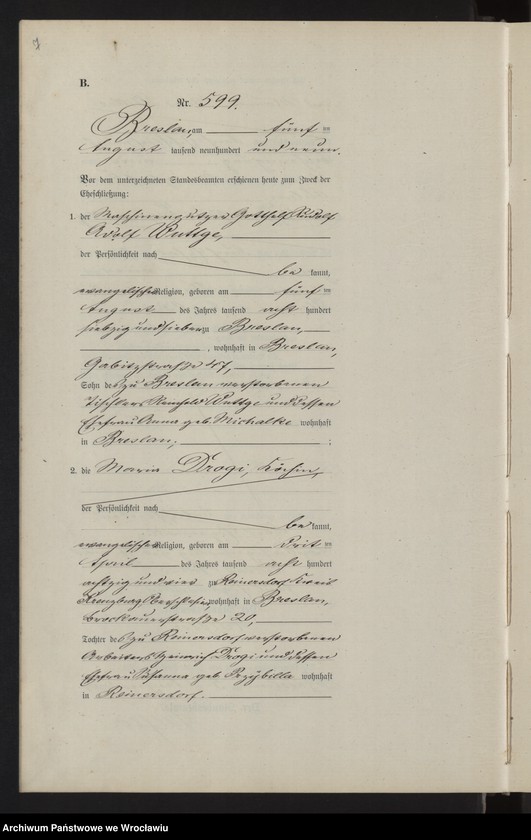 B.
Nr. 599.
Breslau, am fünf ten
August tausend neunhundert und neun.
Vor dem unterzeichneten Standesbeamten erschienen heute zum Zweck der
Eheschließung:
1. der Maschinenputzer Gotthelf Rudolf
Adolf Wuttge,
der Persönlichkeit nach
be kannt,
evangelischer Religion, geboren am fünf ten
August des Jahres tausend acht hundert
siebzig und sieben zu Breslau,
, wohnhaft in Breslau,
Gabitzstraße 47,
Sohn des zu Breslau verstorbenen
Tischlers Reinhold Wuttge und dessen
Ehefrau Anna geb. Michalke wohnhaft
in Breslau; ;
2. die Maria Drogi, Köchin,
der Persönlichkeit nach
be kannt,
evangelischer Religion, geboren am drit ten
April des Jahres tausend acht hundert
achtzig und vier zu Reinersdorf Kreis
Kreuzburg Oberschlesien, wohnhaft in Breslau,
Brockauerstraße 20,
Tochter des zu Reinersdorf verstorbenen
Arbeiters Heinrich Drogi und dessen
Ehefrau Susanna geb. Przybilla wohnhaft
in Reinersdorf.
Archiwum Państwowe we Wrocławiu